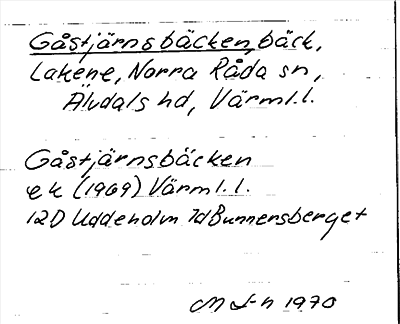 Gåstjärnsbäcken, bäck,
Lakene, Norra Råda sn,
Älvdals hd, Värml.l.
Gåstjärnsbäcken
ek (1969) Värml.l.
12D Uddeholm 7d Bunnersberget
M L-n 1970